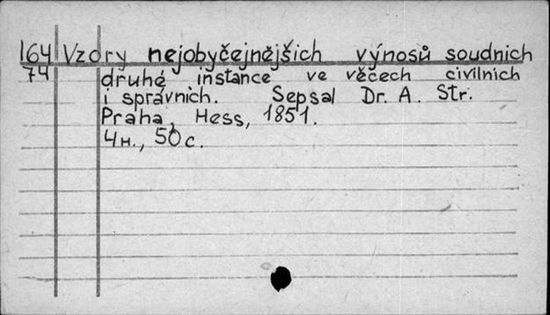 164 Vzory nejobyčejnějšich výnosů soudnich
74 druhé instance ve věcech civilnich
i správnich. Sepsal Dr. A. Str.
Praha, Hess, 1851.
4н., 50c.